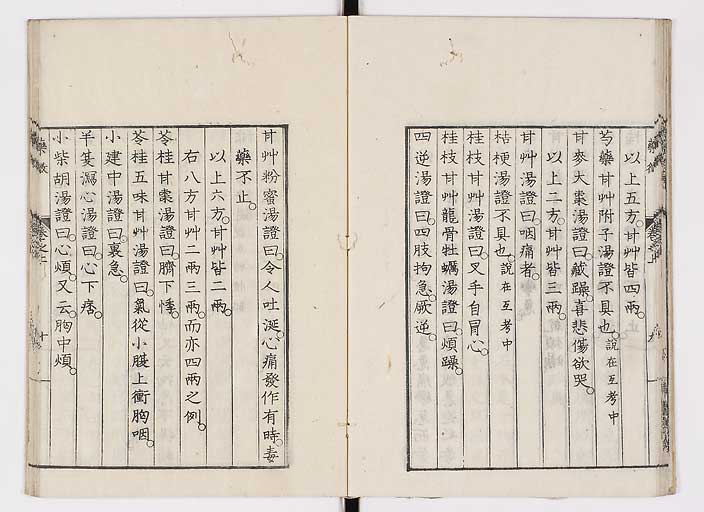 以上五方。甘艸皆四兩。
芍藥甘艸附子湯證不具也。說在互考中
甘麥大棗湯證曰。臟躁。喜悲傷欲哭。
以上二方。甘艸皆三兩。
甘艸湯證曰。咽痛者。
桔梗湯證不具也。說在互考中
桂枝甘艸湯證曰。叉手自冒心。
桂枝甘艸龍骨牡蠣湯證曰。煩躁。
四逆湯證曰。四肢拘急。厥逆。
甘艸粉蜜湯證曰。令人吐涎。心痛發作有時。毒
藥不止。
以上六方。甘艸皆二兩。
右八方。甘艸二兩三兩。而亦四兩之例。
苓桂甘棗湯證曰。臍下悸。
苓桂五味甘艸湯證曰。氣從小腹上衝胸咽。
小建中湯證曰。裏急。
半夏瀉心湯證曰。心下痞。
小柴胡湯證曰。心煩。又云。胸中煩。